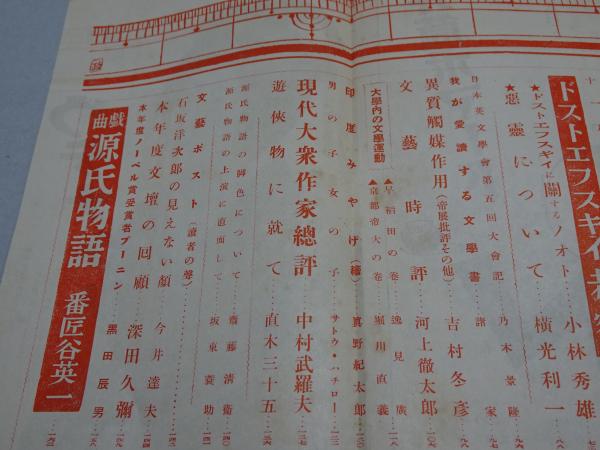 ドストエフスキイ
★ドストエフスキイに關するノオト 小林秀雄
★惡靈について 横光利一
日本英文學會第五回大會記 乃木景隆
我が愛讀する文學書 諸家
異質觸媒作用(帝展批評その他) 吉村冬彦
文藝時評 河上徹太郎
大學內の文學運動
▲早稻田の卷 逸見廣
▲京都帝大の卷 堀川直義
印度みやげ(繪) 眞野紀太郎
男の子女の子 サトウ・ハチロー
現代大衆作家總評 中村武羅夫
遊俠物に就て 直木三十五
源氏物語の脚色について 齋藤清衞
源氏物語の上演に直面して 坂東簑助
文藝ポスト(讀者の聲)
石坂洋次郎の見えない顏 今井達夫
本年度文壇の回顧 深田久彌
本年度ノーベル賞受賞者ブーニン 黒田辰男
戯曲 源氏物語 番匠谷英一